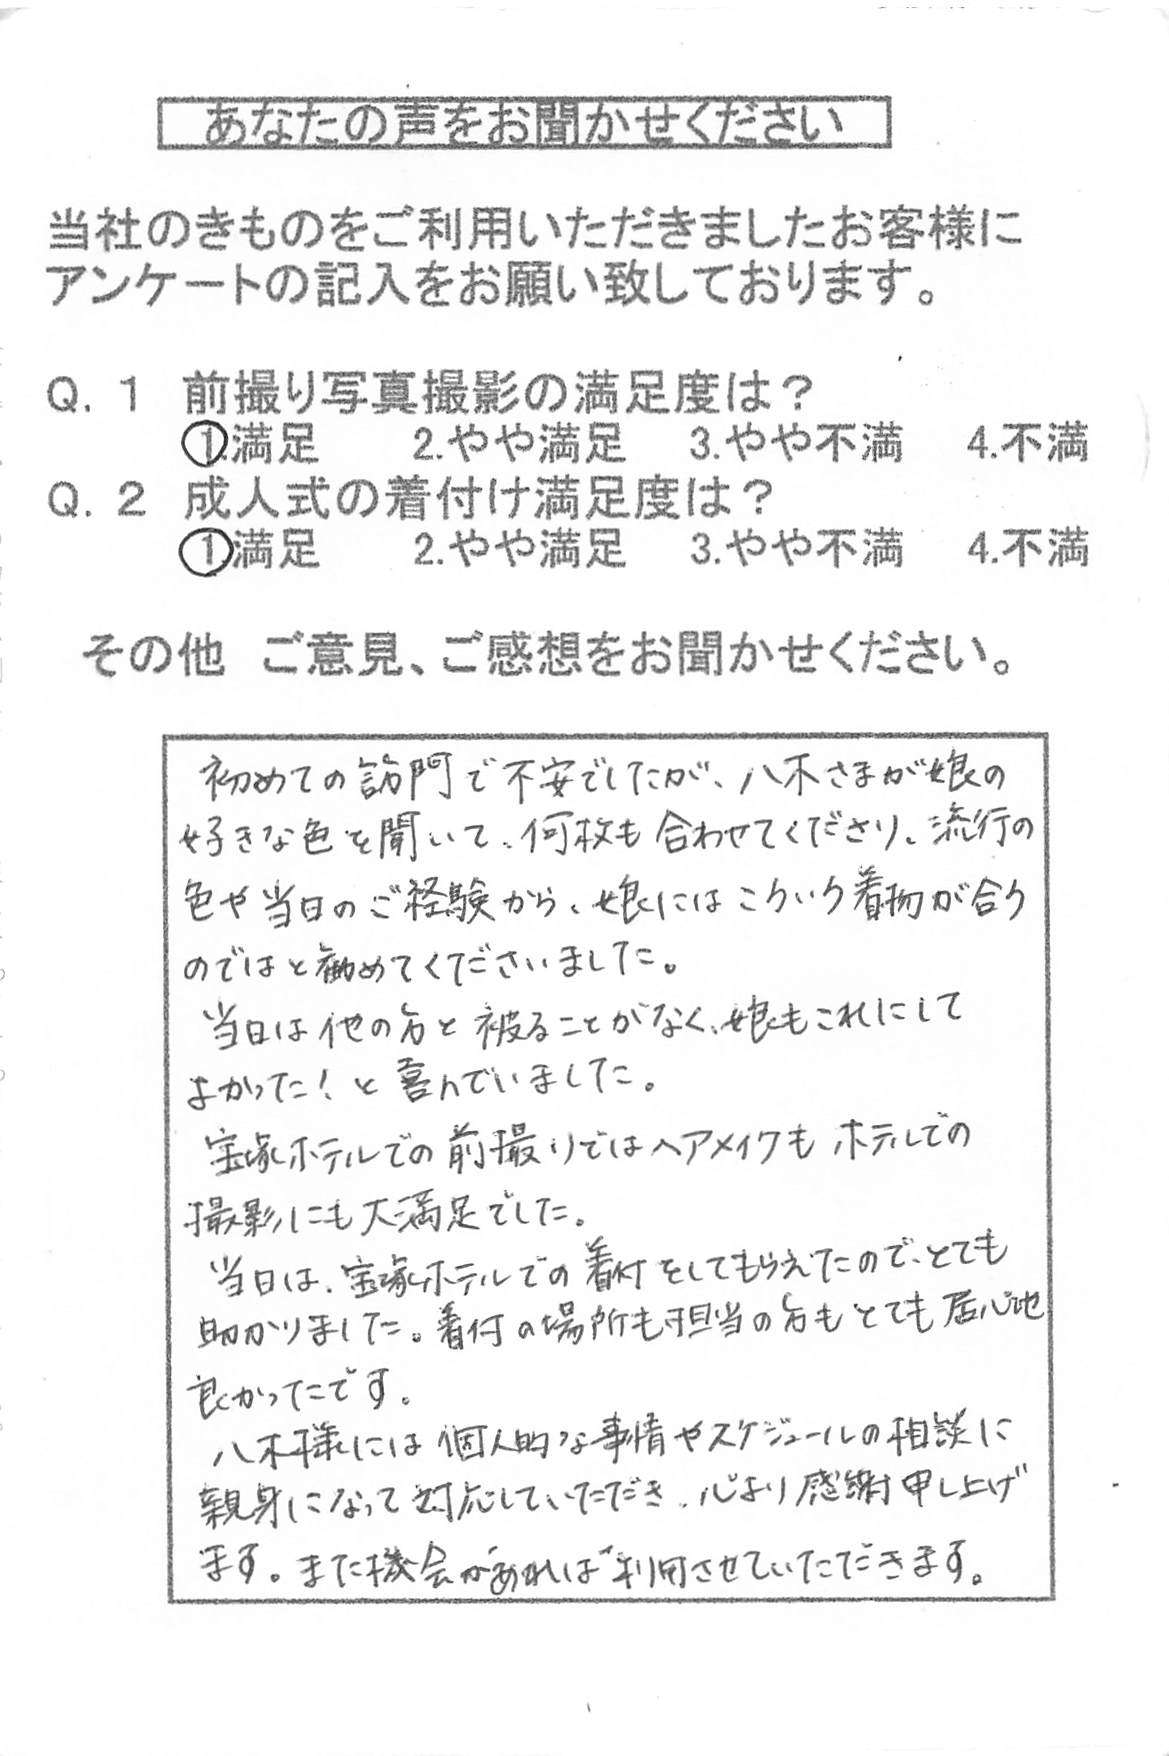 あなたの声をお聞かせください
当社のきものをご利用いただきましたお客様に
アンケートの記入をお願い致しております。
Q.1 前撮り写真撮影の満足度は？
1.満足 2.やや満足 3.やや不満 4.不満
Q.2 成人式の着付け満足度は？
1.満足 2.やや満足 3.やや不満 4.不満
その他 ご意見、ご感想をお聞かせください。
初めての訪問で不安でしたが、八木さまが娘の
好きな色を聞いて、何枚も合わせてくださり、流行の
色や当日のご経験から、娘にはこういう着物が合う
のではと勧めてくださいました。
当日は他の方と被ることがなく、娘もこれにして
よかった！と喜んでいました。
宝塚ホテルでの前撮りではヘアメイクもホテルでの
撮影にも大満足でした。
当日は、宝塚ホテルでの着付をしてもらえたので、とても
助かりました。着付の場所も担当の方もとても居心地
良かったです。
八木様には個人的な事情やスケジュールの相談に
親身になって対応していただき、心より感謝申し上げ
ます。また機会があれば利用させていただきます。